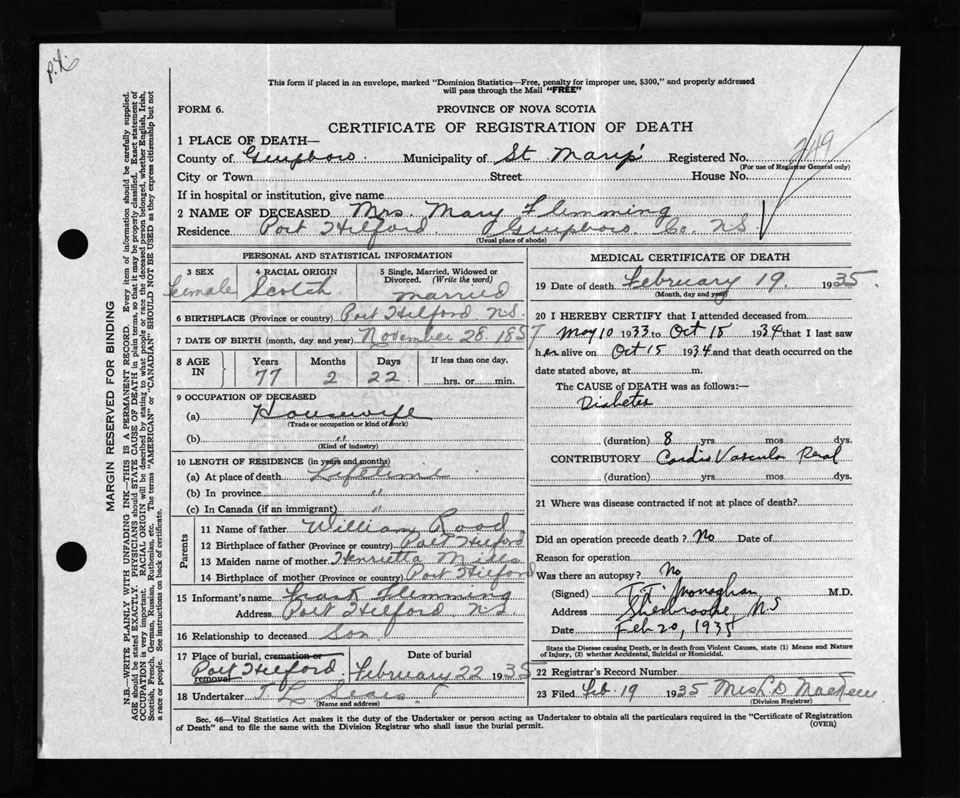 This form if placed in an envelope, marked "Dominion Statistics—Free, penalty for improper use, $300," and properly addressed
will pass through the Mail "FREE"
FORM 6.
PROVINCE OF NOVA SCOTIA
CERTIFICATE OF REGISTRATION OF DEATH
1 PLACE OF DEATH—
County of Guysboro. Municipality of St Mary's Registered No. 249
(For use of Registrar General only)
City or Town Street House No.
If in hospital or institution, give name
2 NAME OF DECEASED Mrs. Mary Flemming
Residence Port Hilford. Guysboro. Co. N.S.
(Usual place of abode)
PERSONAL AND STATISTICAL INFORMATION
3 SEX 4 RACIAL ORIGIN 5 Single, Married, Widowed or
Divorced. (Write the word)
Female Scotch married
6 BIRTHPLACE (Province or country) Port Hilford N.S.
7 DATE OF BIRTH (month, day and year) November 28. 1857
8 AGE IN Years Months Days If less than one day,
77 2 22 hrs. or min.
9 OCCUPATION OF DECEASED
(a) Housewife
(Trade or occupation or kind of work)
(b) "
(Kind of industry)
10 LENGTH OF RESIDENCE (in years and months)
(a) At place of death Lifetime
(b) In province "
(c) In Canada (if an immigrant) "
Parents
11 Name of father William Rood
12 Birthplace of father (Province or country) Port Hilford
13 Maiden name of mother Henrietta
14 Birthplace of mother (Province or country) Port Hilford
15 Informant's name Frank Flemming
Address Port Hilford N.S
16 Relationship to deceased Son
17 Place of burial, cremation or removal Date of burial
Port Hilford February 22 1935
18 Undertaker T L Sears
(Name and address)
MEDICAL CERTIFICATE OF DEATH
19 Date of death February 19, 1935.
(Month, day and year)
20 I HEREBY CERTIFY that I attended deceased from
May 10 1933 to Oct 15 1934 that I last saw
her alive on Oct 15 1934 and that death occurred on the
date stated above, at m.
The CAUSE of DEATH was as follows:—
Diabetes
(duration) 8 yrs. mos. dys.
CONTRIBUTORY Cardio Vascular Renal
(duration) yrs. mos. dys.
21 Where was disease contracted if not at place of death?
Did an operation precede death? No Date of
Reason for operation
Was there an autopsy? No
(Signed) Monaghan M.D.
Address Sherbrooke, N.S
Date Feb 20, 1935
State the Disease causing Death, or in death from Violent Causes, state (1) Means and Nature
of Injury, (2) whether Accidental, Suicidal or Homicidal.
22 Registrar's Record Number
23 Filed Feb. 19 1935 Mrs L D
(Division Registrar)
Sec. 46—Vital Statistics Act makes it the duty of the Undertaker or person acting as Undertaker to obtain all the particulars required in the "Certificate of Registration
of Death" and to file the same with the Division Registrar who shall issue the burial permit. (OVER)
MARGIN RESERVED FOR BINDING
N.B.—WRITE PLAINLY WITH UNFADING INK—THIS IS A PERMANENT RECORD. Every item of information should be carefully supplied.
AGE should be stated EXACTLY. PHYSICIANS should STATE CAUSE OF DEATH in plain terms, so that it may be properly classified. Exact statement of
OCCUPATION is very important. RACIAL ORIGIN will be described by stating to what people or race the deceased person belonged, whether English, Irish,
Scottish, French, German, Russian, Ruthenian, etc. The terms "AMERICAN" or "CANADIAN" SHOULD NOT BE USED as they express citizenship but not
a race or people. See instructions on back of certificate.